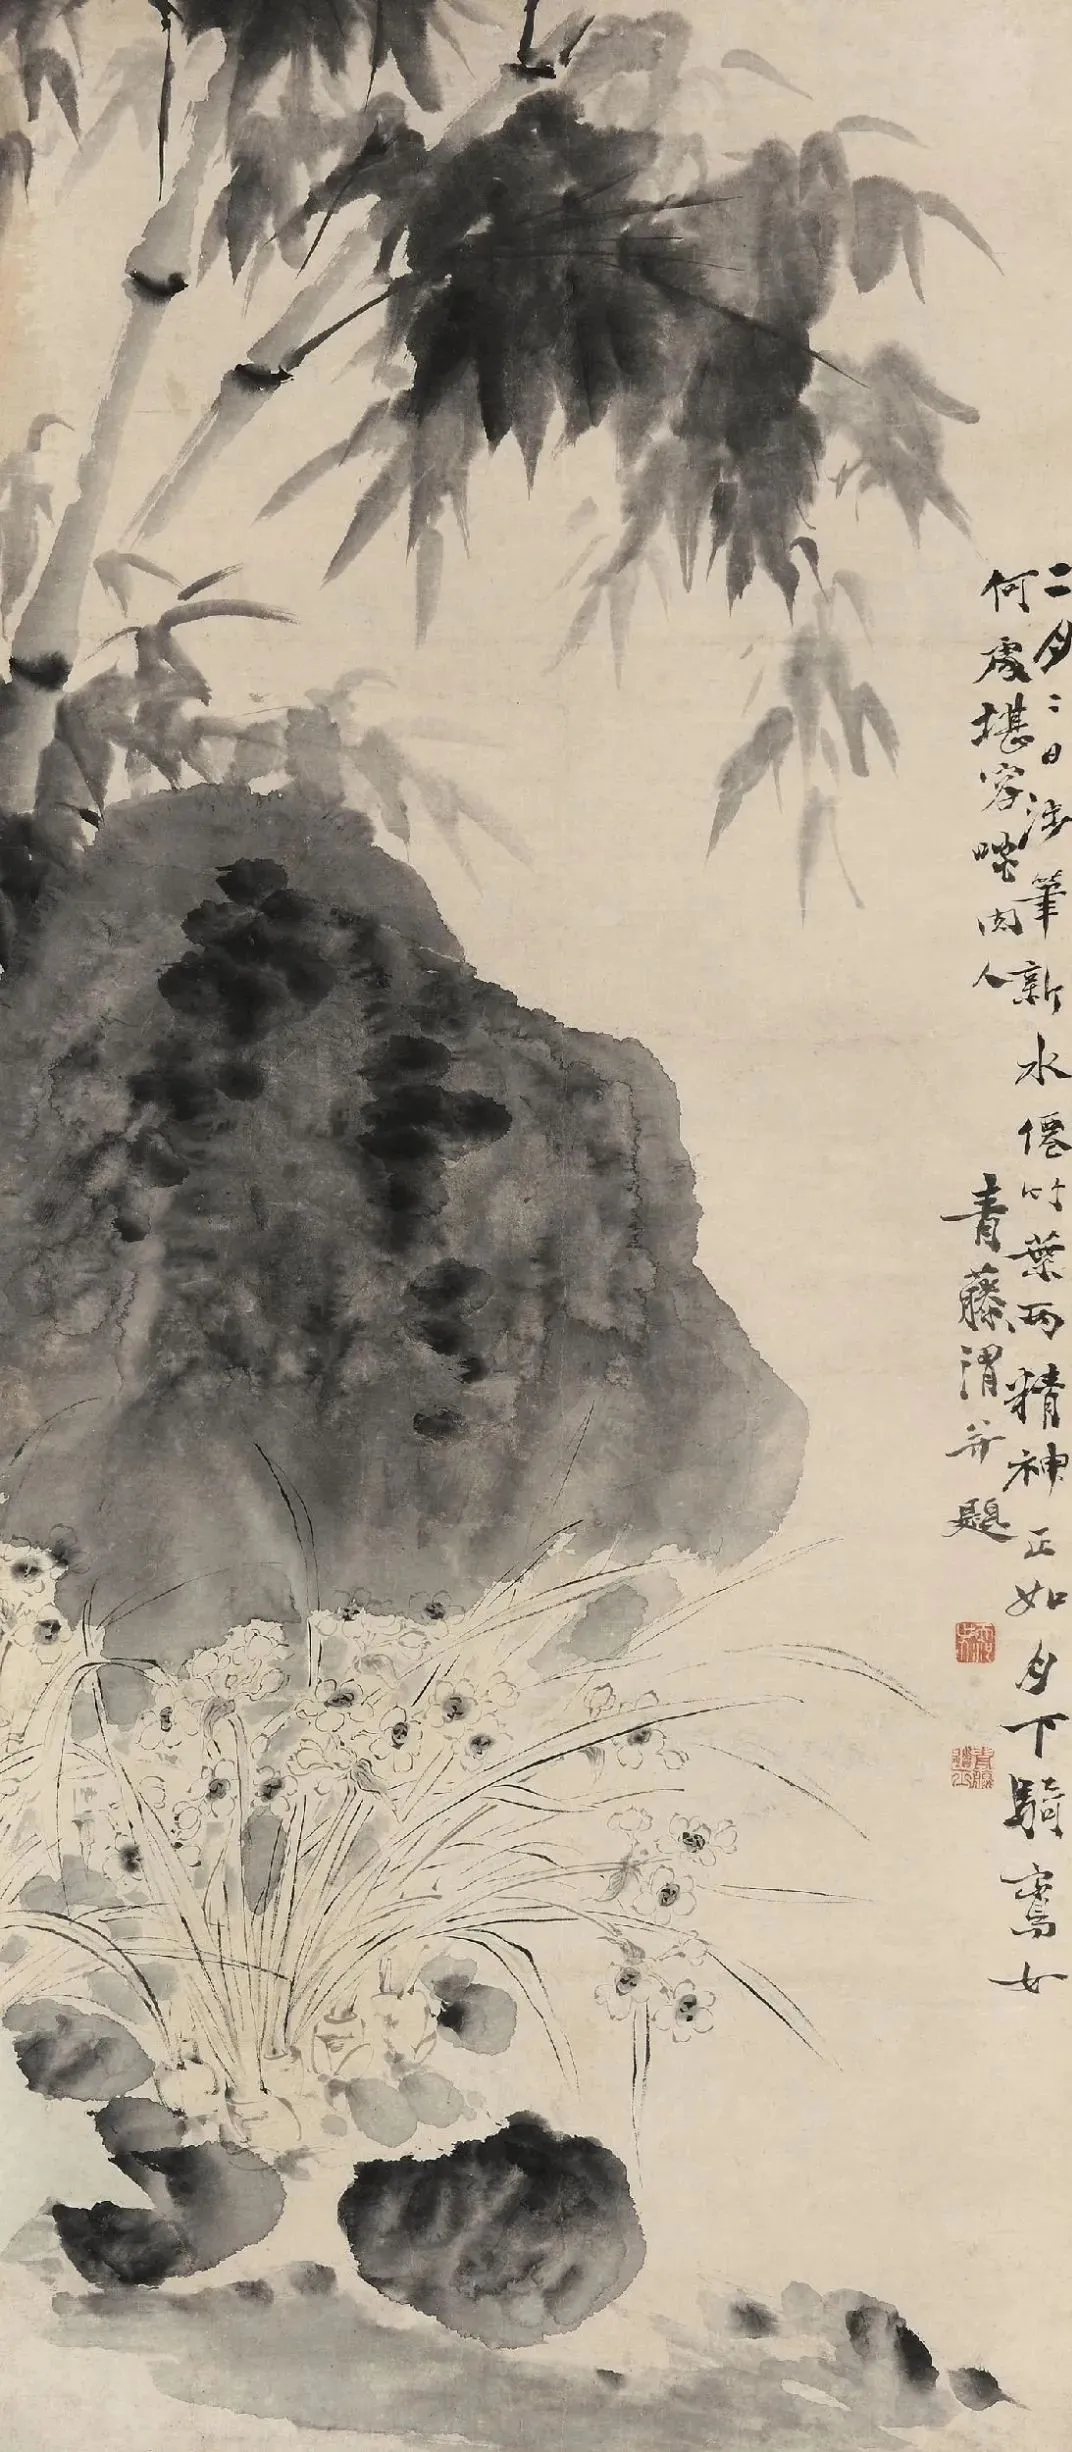 二月二日涉筆新水僊竹葉兩精神正如月下騎鸞女
何處堪容啖肉人
青藤渭并題